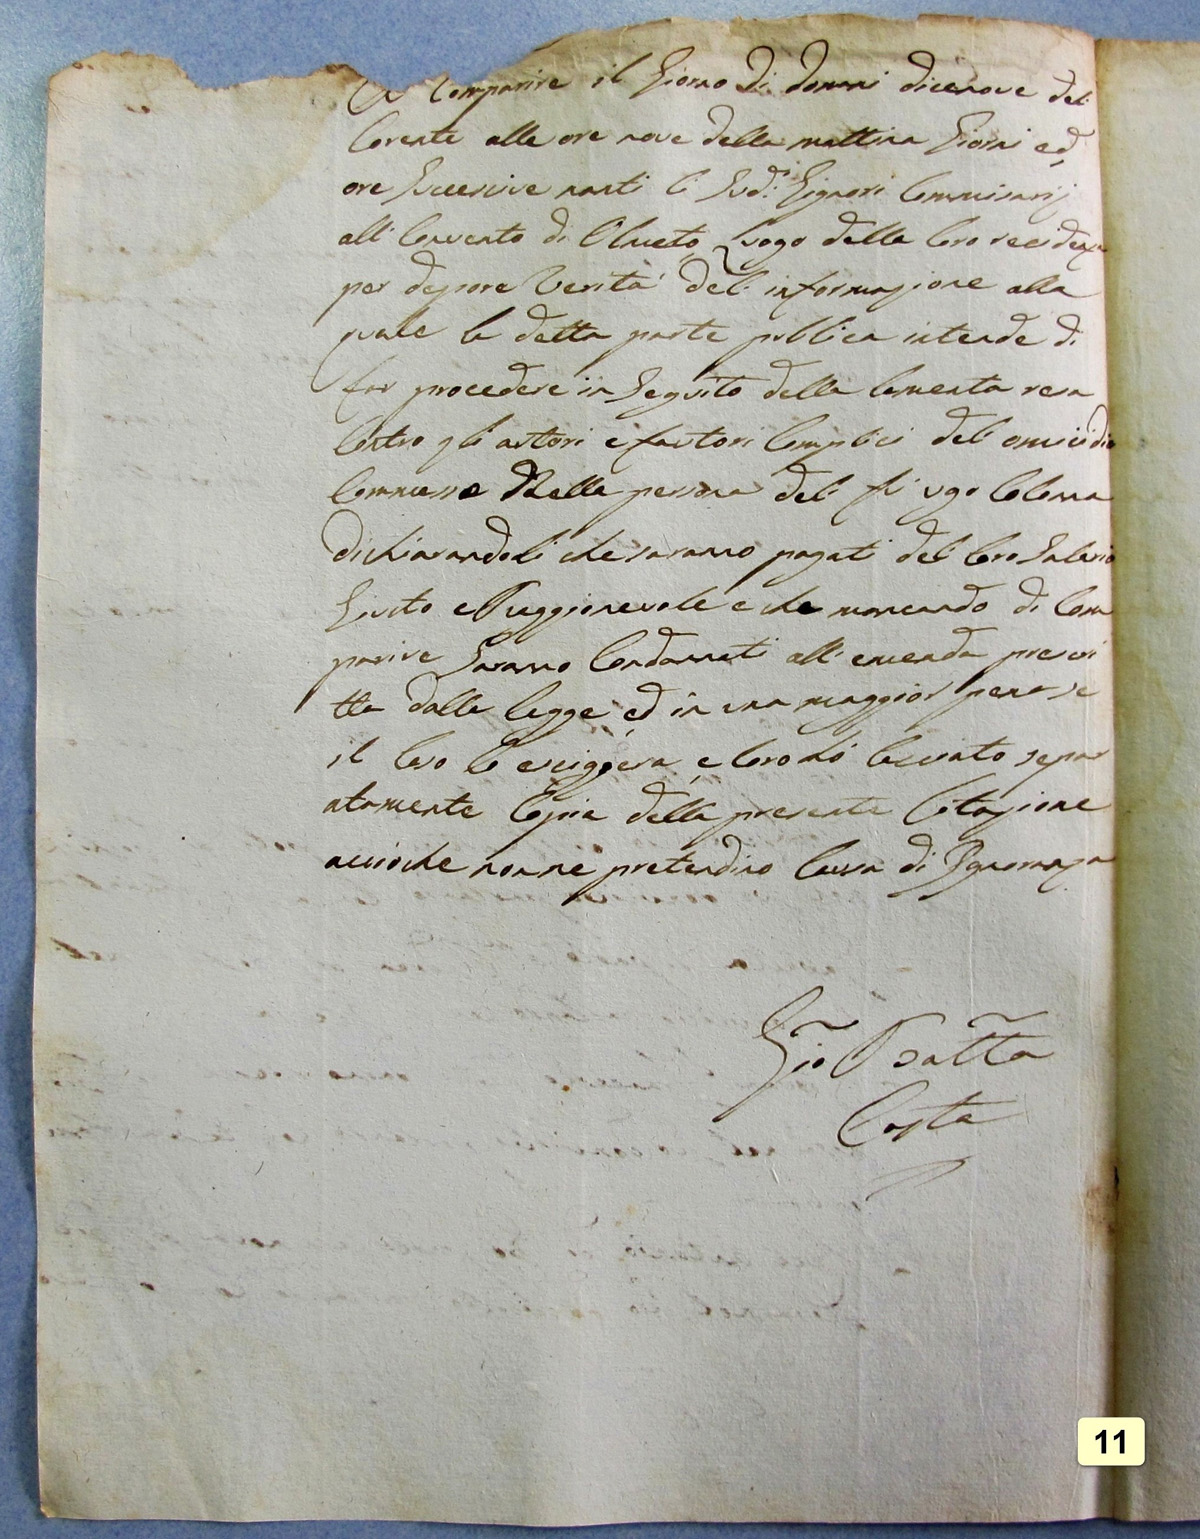 a Comparire il Giorno di domani dicenove del
Corente alle ore nove della mattina Giorni ed
ore Successive nanti li Sud.i Signori Commissarij
all Convento di Olmeto Luogo della loro residenza
per depore Verita del informazione alla
quale la detta parte publica intende di
far procedere in Seguito della lamenta resa
Contro gli autori e fautori Complici del omicidio
Commesso Nella persona del fu ugo Colonna
dichiarandoli che saranno pagati del loro Salario
Giusto e Raggionevole e che mancando di Com
parire Saranno Condannati all emenda prescri
tta dalla legge ed in una maggior pena se
il Caso lo esiggera, e loro hò lasciato separ
atamente Copia della presente Citazione
accioche non ne pretendino Causa di Ignoranza
Gio Batta
Costa
11